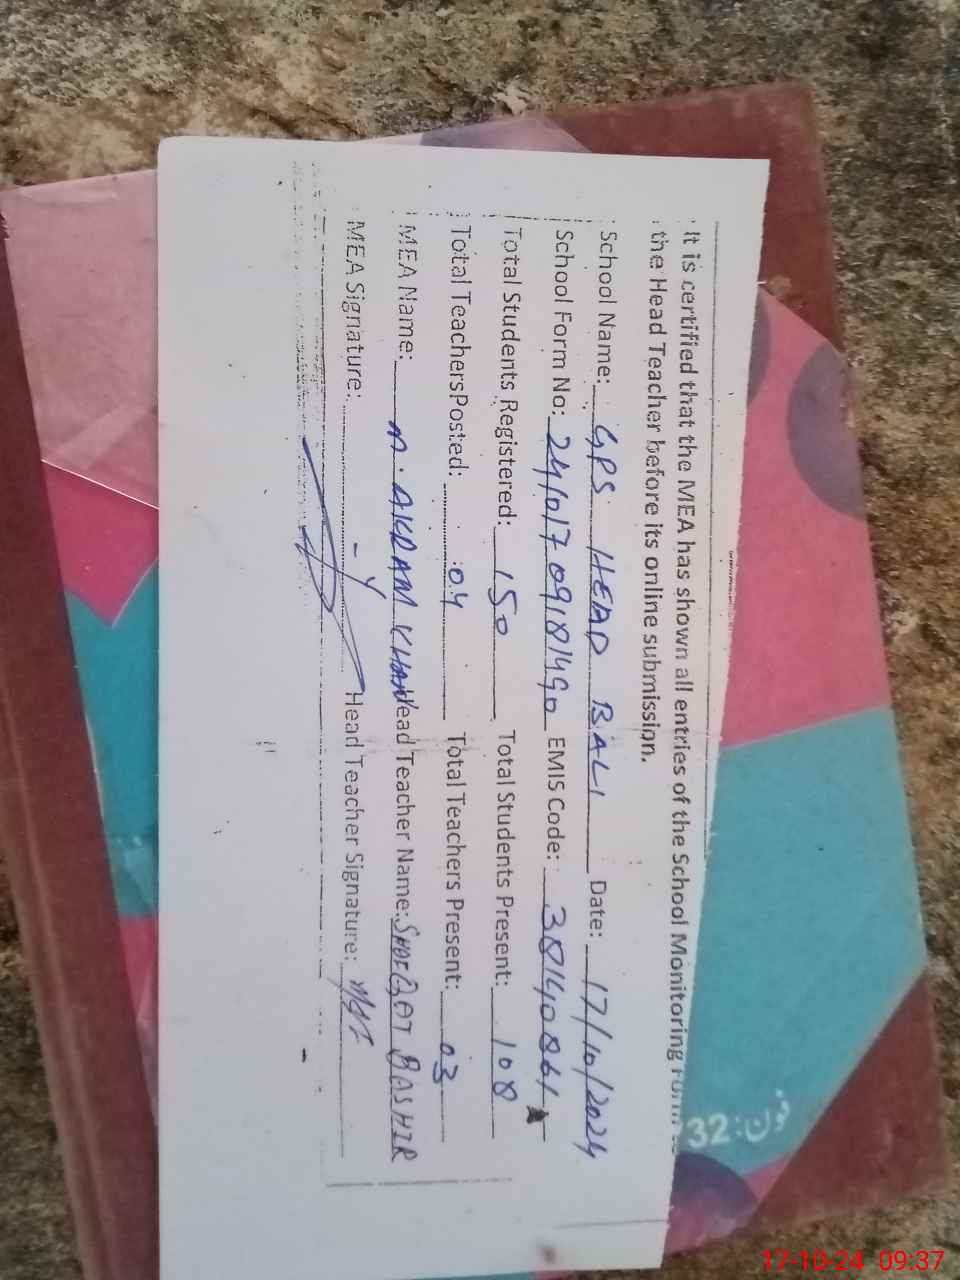 It is certified that the MEA has shown all entries of the School Monitoring Form to
the Head Teacher before its online submission.
School Name: GPS HEAD BALI Date: 17/10/2024
School Form No: 24101709181490 EMIS Code: 38140861
Total Students Registered: 150 Total Students Present: 108
Total TeachersPosted: 04 Total Teachers Present: 03
MEA Name: M. AKRAM KHAN Head Teacher Name: SHAFQAT BASHIR
MEA Signature: Head Teacher Signature:
فون: 32
17-10-24 09:37